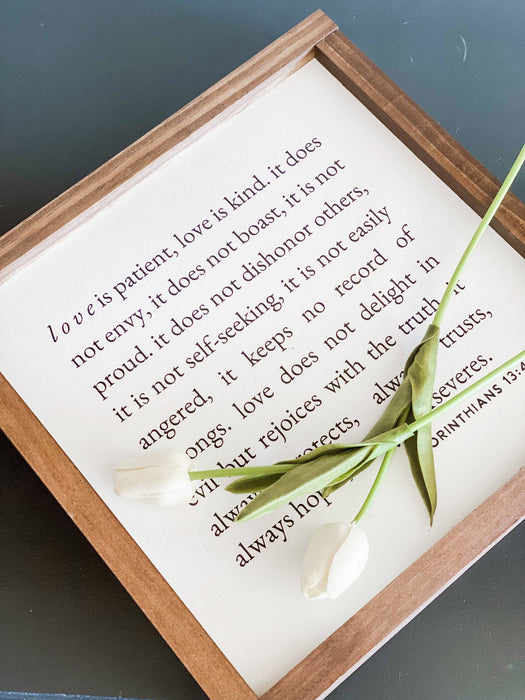 love is patient, love is kind. it does
not envy, it does not boast, it is not
proud. it does not dishonor others,
it is not self-seeking, it is not easily
angered, it keeps no record of
ongs. love does not delight in
evil but rejoices with the truth it
always rotects, alwa trusts,
always hop severes.
ORINTHIANS 13:4